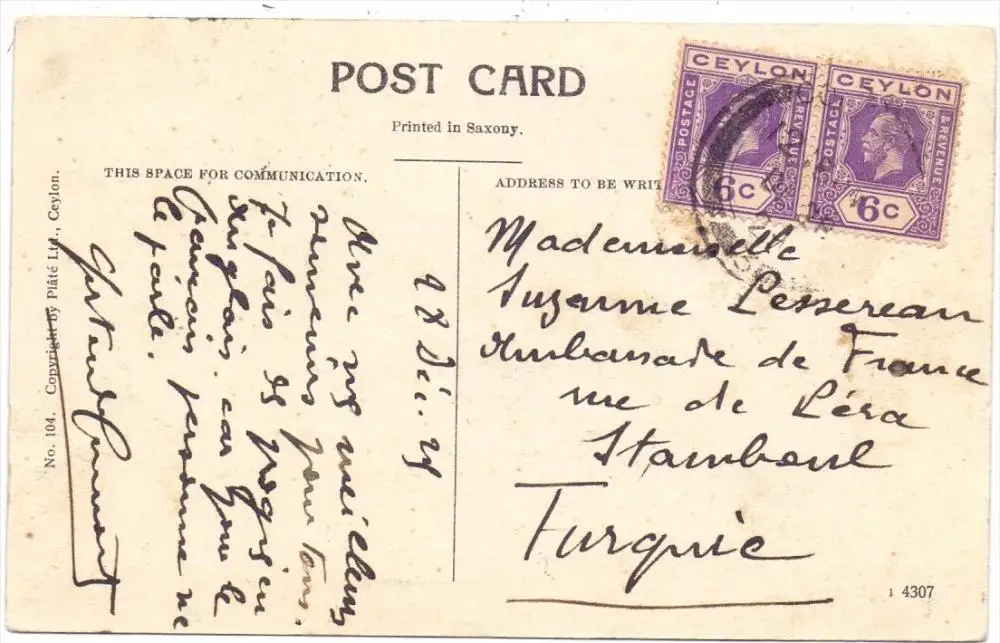 POST CARD
Printed in Saxony.
THIS SPACE FOR COMMUNICATION.
ADDRESS TO BE WRIT
CEYLON
POSTAGE
& REVENUE
6c
CEYLON
POSTAGE
& REVENUE
6c
Mademoiselle
Suzanne Lessereau
Ambassade de France
rue de Péra
Stamboul
Turquie
28 Déc. 25
Avec mes meilleurs
pour tous.
Je fais des progrès en
Anglais, car pour le
Français personne ne
le parle.
No. 104. Copyright by Plâté Ltd., Ceylon.
1 4307